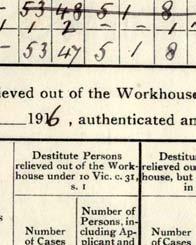 53 48 5 1 8
1 2 - - 1
53 47 5 1 8
ieved out of the Workhouse
1916, authenticated an
Destitute Persons
relieved out of the Work-
house under 10 Vic. c. 31,
s. 1
Destitu
relieved ou
house, but
in
Number
of Cases
Number of
Persons, in-
cluding Ap-
plicant and
Number
of Cases